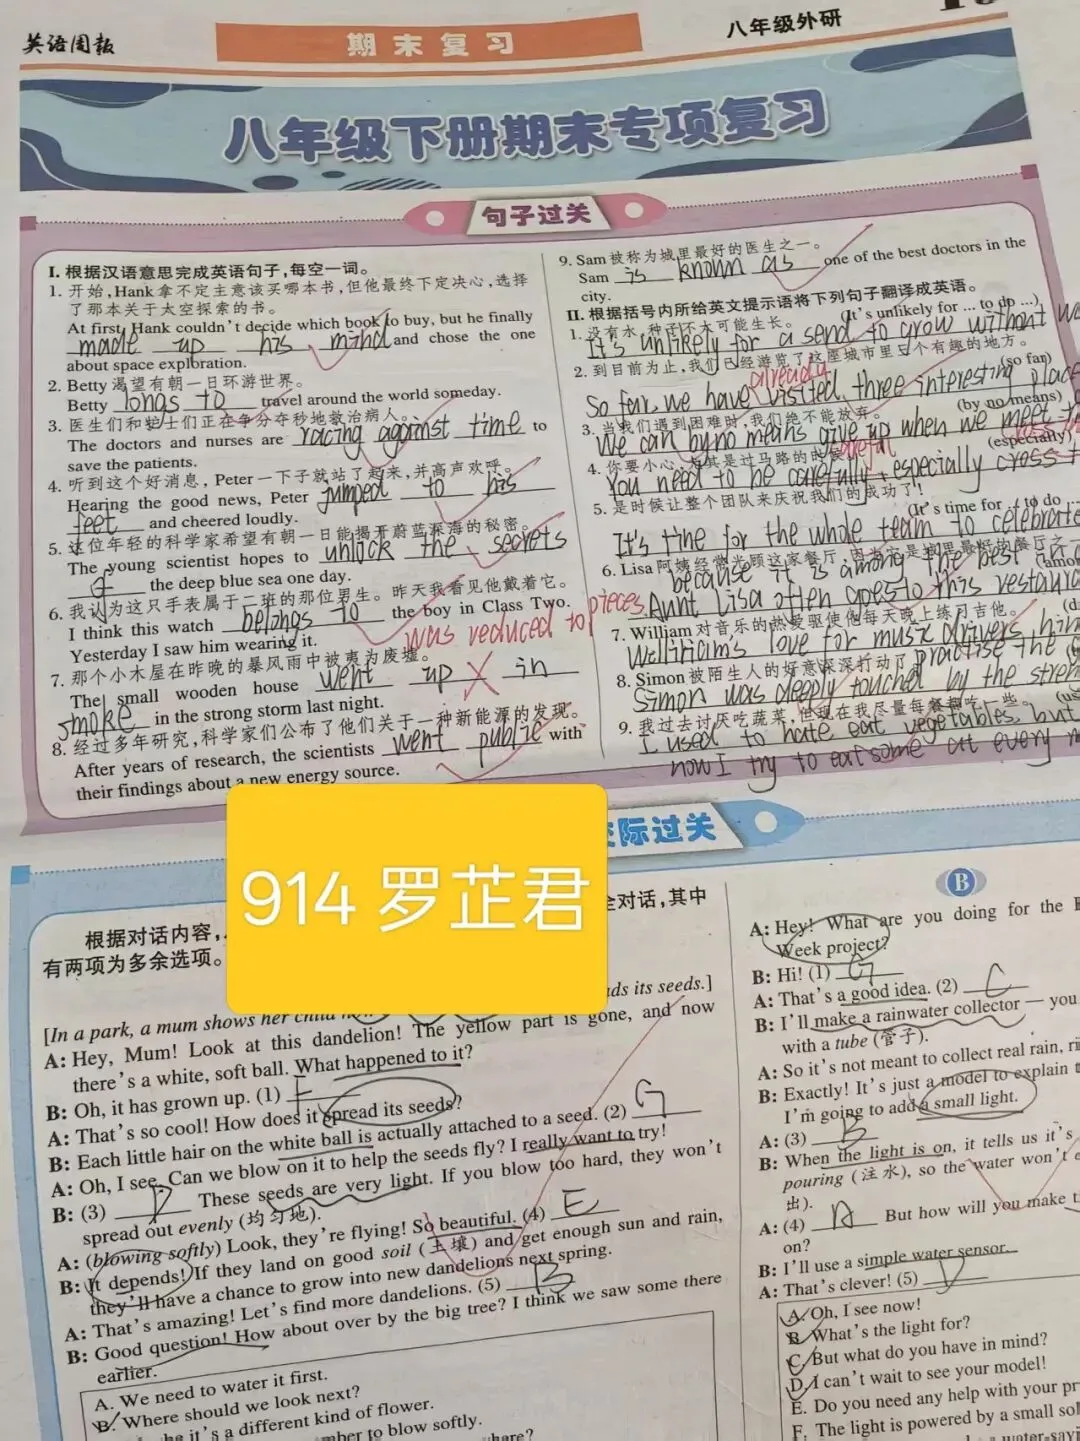 英语周报
期末复习
八年级外研
八年级下册期末专项复习
句子过关
I. 根据汉语意思完成英语句子,每空一词。
1. 开始,Hank拿不定主意该买哪本书,但他最终下定决心,选择
了那本关于太空探索的书。
At first, Hank couldn't decide which book to buy, but he finally
made up his mind and chose the one
about space exploration.
2. Betty渴望有朝一日环游世界。
Betty longs to travel around the world someday.
3. 医生们和护士们正在争分夺秒地救治病人。
The doctors and nurses are racing against time to
save the patients.
4. 听到这个好消息, Peter一下子就站了起来,并高声欢呼。
Hearing the good news, Peter jumped to his
feet and cheered loudly.
5. 这位年轻的科学家希望有朝一日能揭开蔚蓝深海的秘密。
The young scientist hopes to unlock the secrets
of the deep blue sea one day.
6. 我认为这只手表属于二班的那位男生。昨天我看见他戴着它。
I think this watch belongs to the boy in Class Two.
Yesterday I saw him wearing it.
was reduced to pieces
7. 那个小木屋在昨晚的暴风雨中被夷为废墟。
The small wooden house went up in
smoke in the strong storm last night.
8. 经过多年研究,科学家们公布了他们关于一种新能源的发现。
After years of research, the scientists went public with
their findings about a new energy source.
9. Sam被称为城里最好的医生之一。
Sam is known as one of the best doctors in the
city.
II. 根据括号内所给英文提示语将下列句子翻译成英语。
1. 没有水,种子不太可能生长。 (It's unlikely for ... to do ...)
It's unlikely for a send to grow without
2. 到目前为止,我们已经游览了这座城市里三个有趣的地方。
(so far)
already
So far, we have visited three interesting
3. 当我们遇到困难时,我们绝不能放弃。 (by no means)
We can by no means give up when we meet
4. 你要小心,尤其是过马路的时候。 (especially)
careful
You need to be carefully, especially cross
5. 是时候让整个团队来庆祝我们的成功了! (It's time for ... to do
It's time for the whole team to celebrate
6. Lisa阿姨经常光顾这家餐厅,因为它是城里最好的餐厅之一
because it is among the best
Aunt Lisa often goes to this
7. William对音乐的热爱驱使他每天晚上练习吉他。
Welliriams love for music drivers him
practise the
8. Simon被陌生人的好意深深打动了
Simon was deeply touched by the
9. 我过去讨厌吃蔬菜,但现在我尽量每餐都吃一些。
I used to hate eat vegetables, but
now I try to eat some at every
交际过关
914 罗芷君
根据对话内容,
全对话,其中
有两项为多余选项。
[In a park, a mum shows her child
ds its seeds.]
A: Hey, Mum! Look at this dandelion! The yellow part is gone, and now
there's a white, soft ball. What happened to it?
B: Oh, it has grown up. (1) F
A: That's so cool! How does it spread its seeds?
B: Each little hair on the white ball is actually attached to a seed. (2) G
A: Oh, I see. Can we blow on it to help the seeds fly? I really want to try!
B: (3) D These seeds are very light. If you blow too hard, they won't
spread out evenly (均匀地).
A: (blowing softly) Look, they're flying! So beautiful. (4) E
B: It depends! If they land on good soil (土壤) and get enough sun and rain,
they'll have a chance to grow into new dandelions next spring.
A: That's amazing! Let's find more dandelions. (5) B
B: Good question! How about over by the big tree? I think we saw some there
earlier.
A. We need to water it first.
B. Where should we look next?
it's a different kind of flower.
to blow softly.
B
A: Hey! What are you doing for the
Week project?
B: Hi! (1) G
A: That's a good idea. (2) C
B: I'll make a rainwater collector — you
with a tube (管子).
A: So it's not meant to collect real rain,
B: Exactly! It's just a model to explain
I'm going to add a small light.
A: (3) B
B: When the light is on, it tells us it's
pouring (注水), so the water won't
出).
A: (4) A But how will you make
on?
B: I'll use a simple water sensor.
A: That's clever! (5) D
A. Oh, I see now!
B. What's the light for?
C. But what do you have in mind?
D. I can't wait to see your model!
E. Do you need any help with your
F. The light is powered by a small